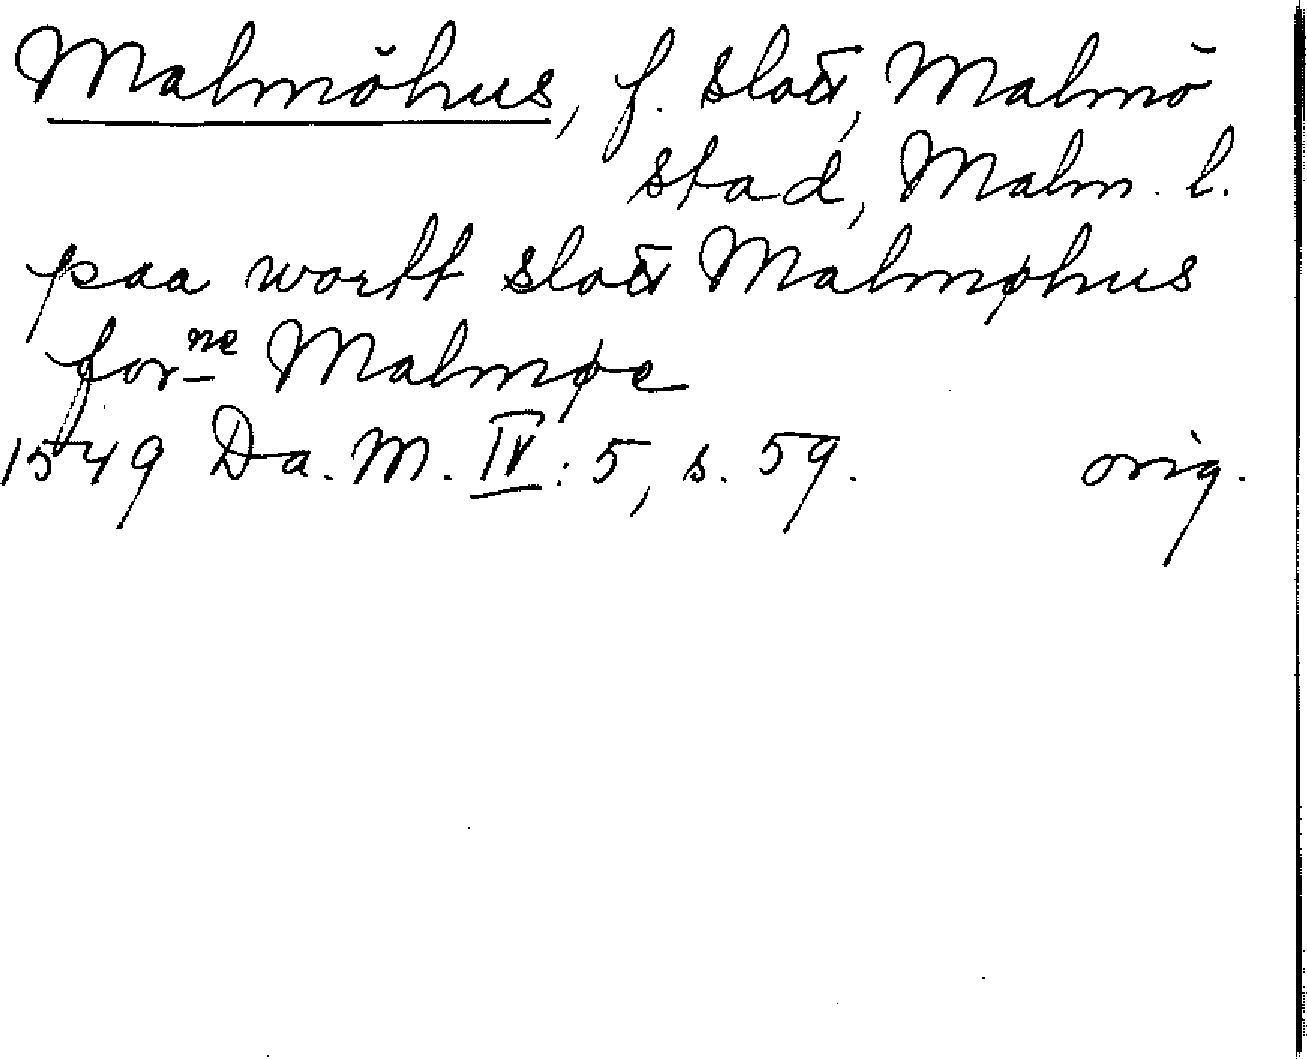 Malmöhus, f. slott, Malmö
stad, Malm. l.
paa wortt slott Malmøhus
forne Malmøe
1549 Da. M. IV: 5, s. 59. orig.